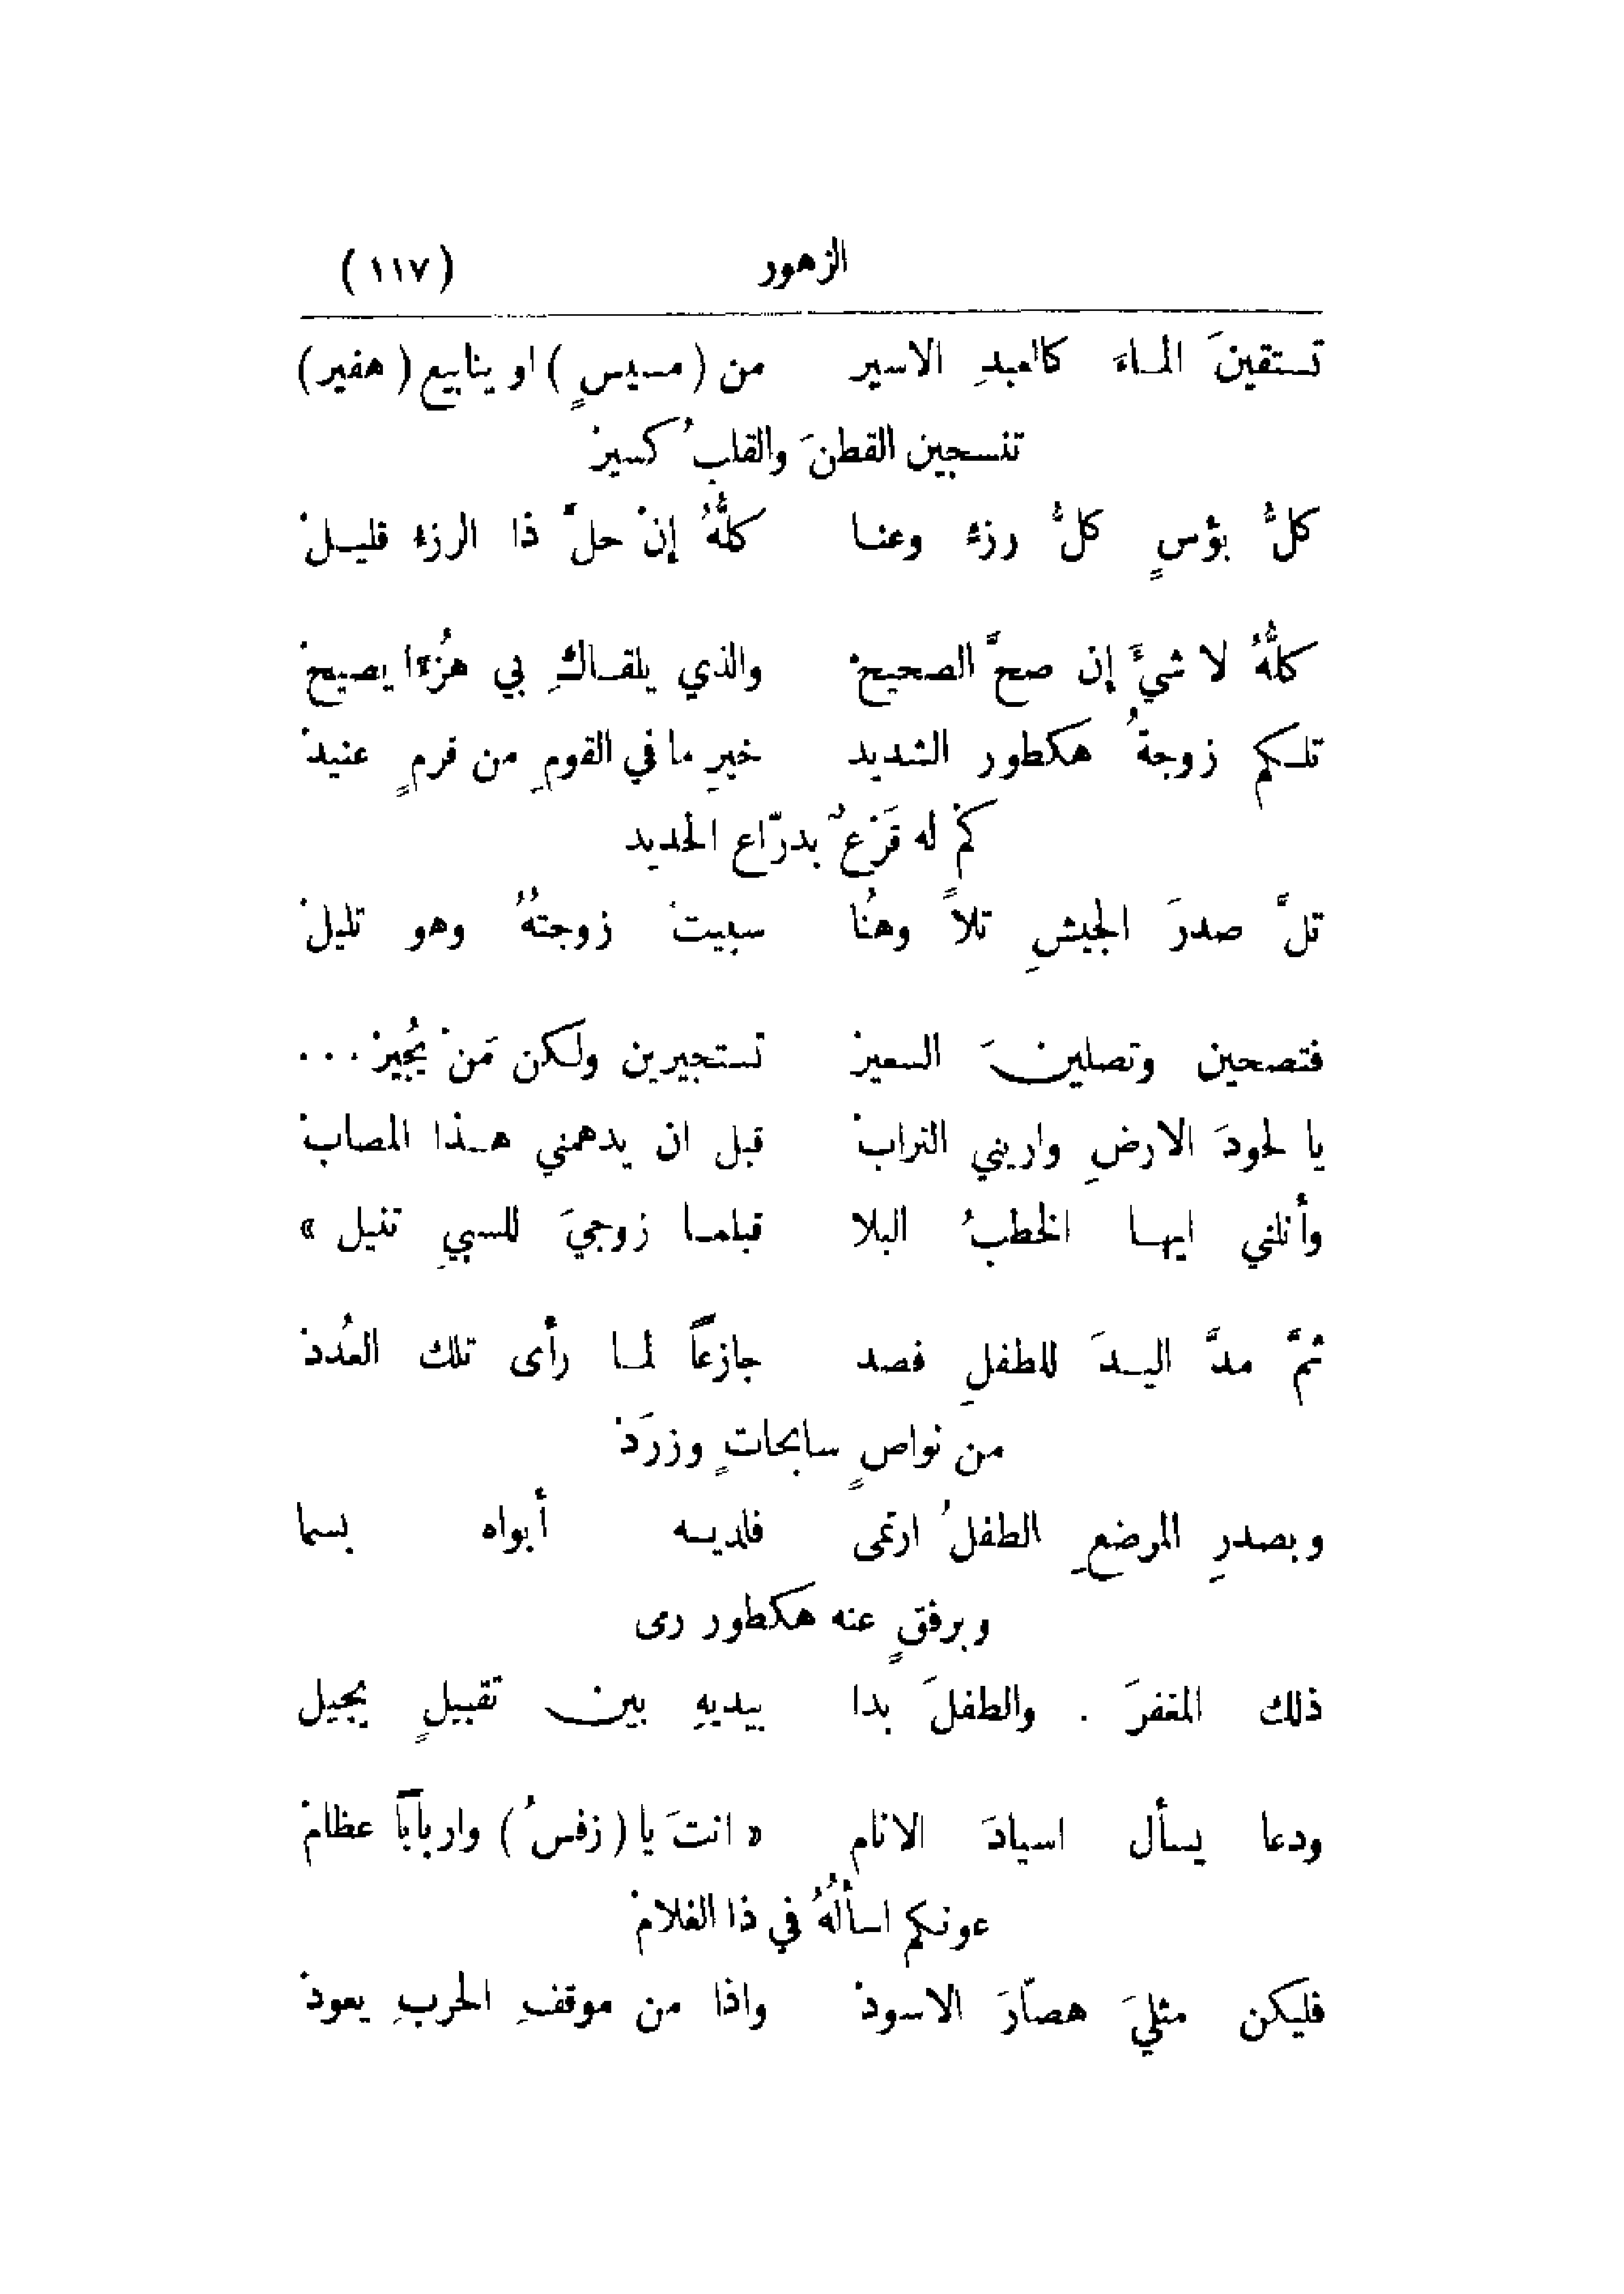 الزهور (١١٧)
تستقينَ الماءَ كالعبدِ الاسير من (مسيسٍ) او ينابيع (هفير)
تنسجين القطنَ والقلبُ كسيرْ
كلُّ بؤسٍ كلُّ رزءٍ وعنا كلُّهُ إنْ حلَّ ذا الرزءُ قليلْ
كلُّهُ لا شيءَ إن صحَّ الصحيحْ والذي يلقاكِ بي هزُءًا يصيحْ
تلكم زوجةُ هكطور الشديد خيرِ ما في القومِ من قرمٍ عنيدْ
كمْ له قَرْعٌ بدرّاع الحديد
تلَّ صدرَ الجيشِ تلاًّ وهنُا سبيتْ زوجتُهُ وهو تليلْ
فتصحين وتصلينَ السعيرْ تستجيرين ولكن مَنْ يُجيرْ ...
يا لحودَ الارضِ واريني الترابْ قبل ان يدهمني هذا المصابْ
وأنلني ايها الخطبُ البلا قبلما زوجيَ للسبيِ تنيل »
ثمَّ مدَّ اليدَ للطفلِ فصد جازعاً لما رأى تلك العُددْ
من نواصٍ سابحاتٍ وزرَدْ
وبصدرِ المرضعِ الطفلُ ارتمى فلديه أبواه بسما
وبرفقٍ عنه هكطور رمى
ذلك المغفرَ . والطفلَ بدا بيديهِ بين تقبيلٍ يجيل
ودعا يسأل اسيادَ الانام « انتَ يا (زفسُ) وارباباً عظامْ
عونكم اسألُهُ في ذا الغلامْ
فليكن مثليَ هصّارَ الاسودْ واذا من موقفِ الحربِ يعودْ